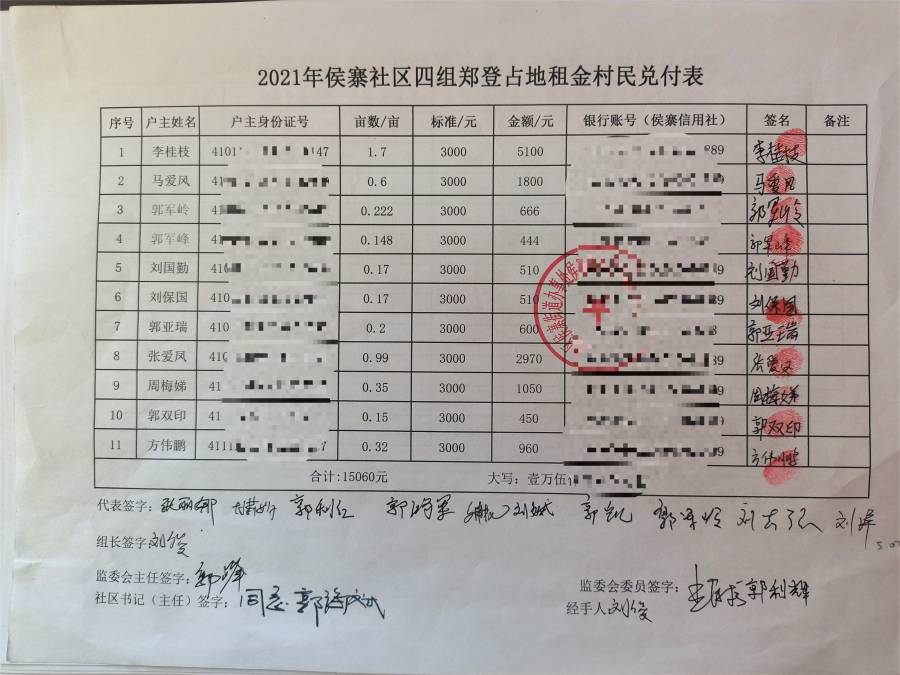 2021年侯寨社区四组郑登占地租金村民兑付表
序号 户主姓名 户主身份证号 亩数/亩 标准/元 金额/元 银行账号（侯寨信用社） 签名 备注
1 李桂枝 4101 147 1.7 3000 5100 989 李桂枝
2 马爱风 41 0.6 3000 1800 马爱风
3 郭军岭 41 0.222 3000 666 郭军岭
4 郭军峰 41 0.148 3000 444 郭军峰
5 刘国勤 410 0.17 3000 510 9 刘国勤
6 刘保国 410 0.17 3000 510 89 刘保国
7 郭亚瑞 410 0.2 3000 600 郭亚瑞
8 张爱凤 410 0.99 3000 2970 89 张爱凤
9 周梅娣 41 0.35 3000 1050 周梅娣
10 郭双印 41 0.15 3000 450 郭双印
11 方伟鹏 4111 7 0.32 3000 960 方伟鹏
合计:15060元 大写：壹万伍
代表签字： 郭利红
组长签字 刘俊
监委会主任签字： 监委会委员签字： 郭利辉
社区书记（主任）签字： 同意 经手人 刘俊